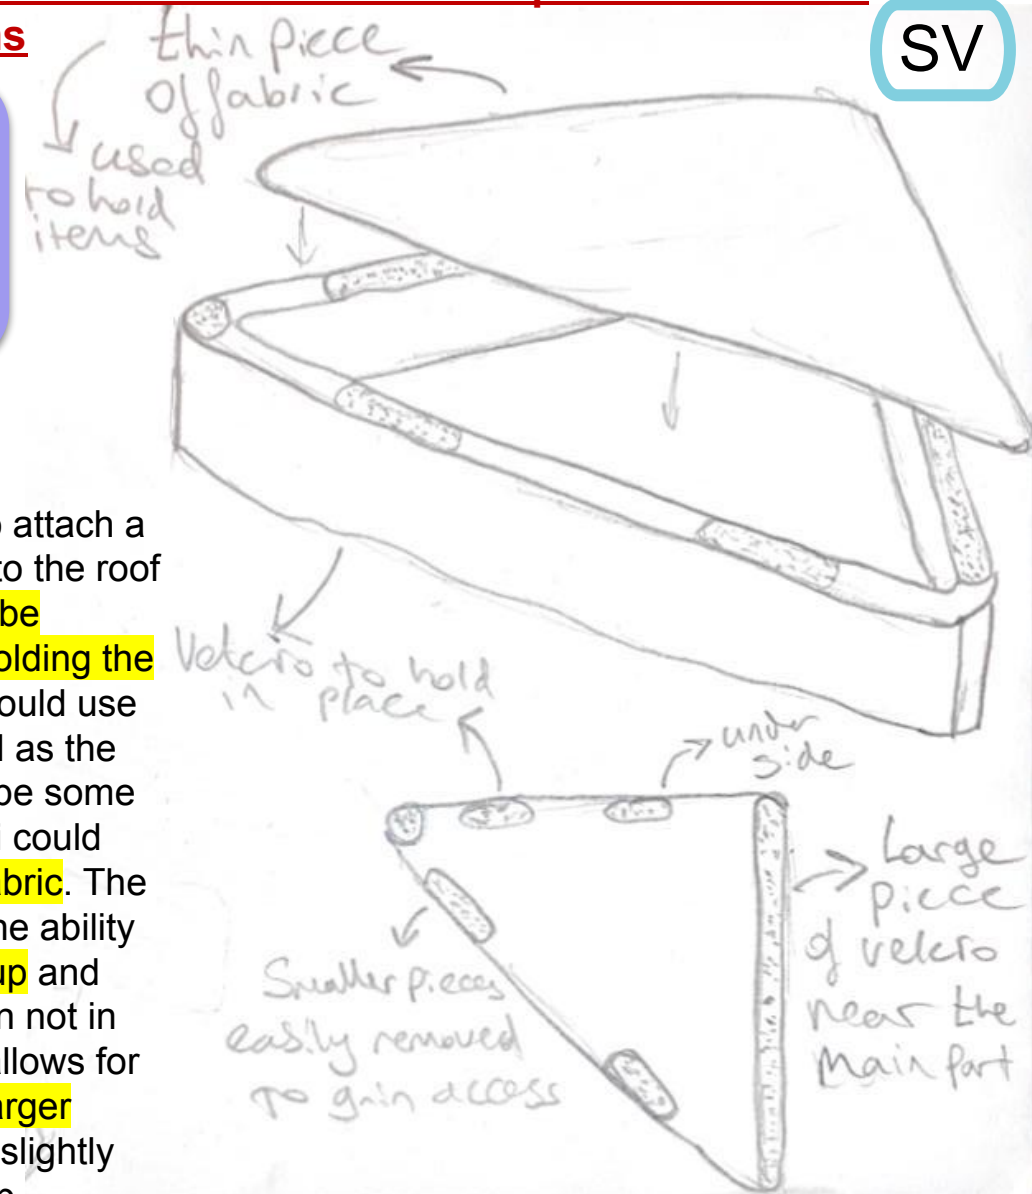 ns
SV
thin piece
of fabric
used
to hold
items
o attach a
to the roof
be
olding the
ould use
d as the
be some
i could
abric. The
he ability
up and
n not in
allows for
arger
slightly
Velcro to hold
in place
under
side
Large
piece
of velcro
near the
main part
Smaller pieces
easily removed
to gain access